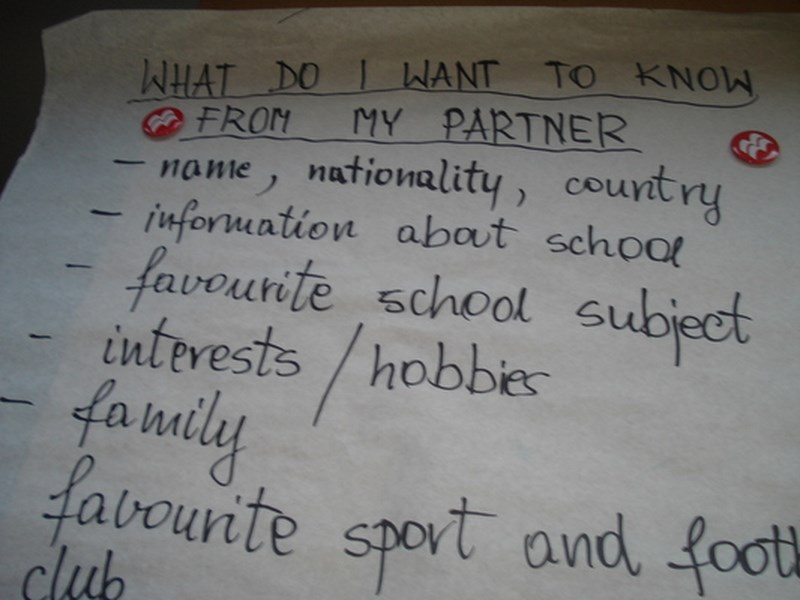 WHAT DO I WANT TO KNOW
FROM MY PARTNER
- name, nationality, country
- information about school
- favourite school subject
- interests / hobbies
- family
favourite sport and footb
club